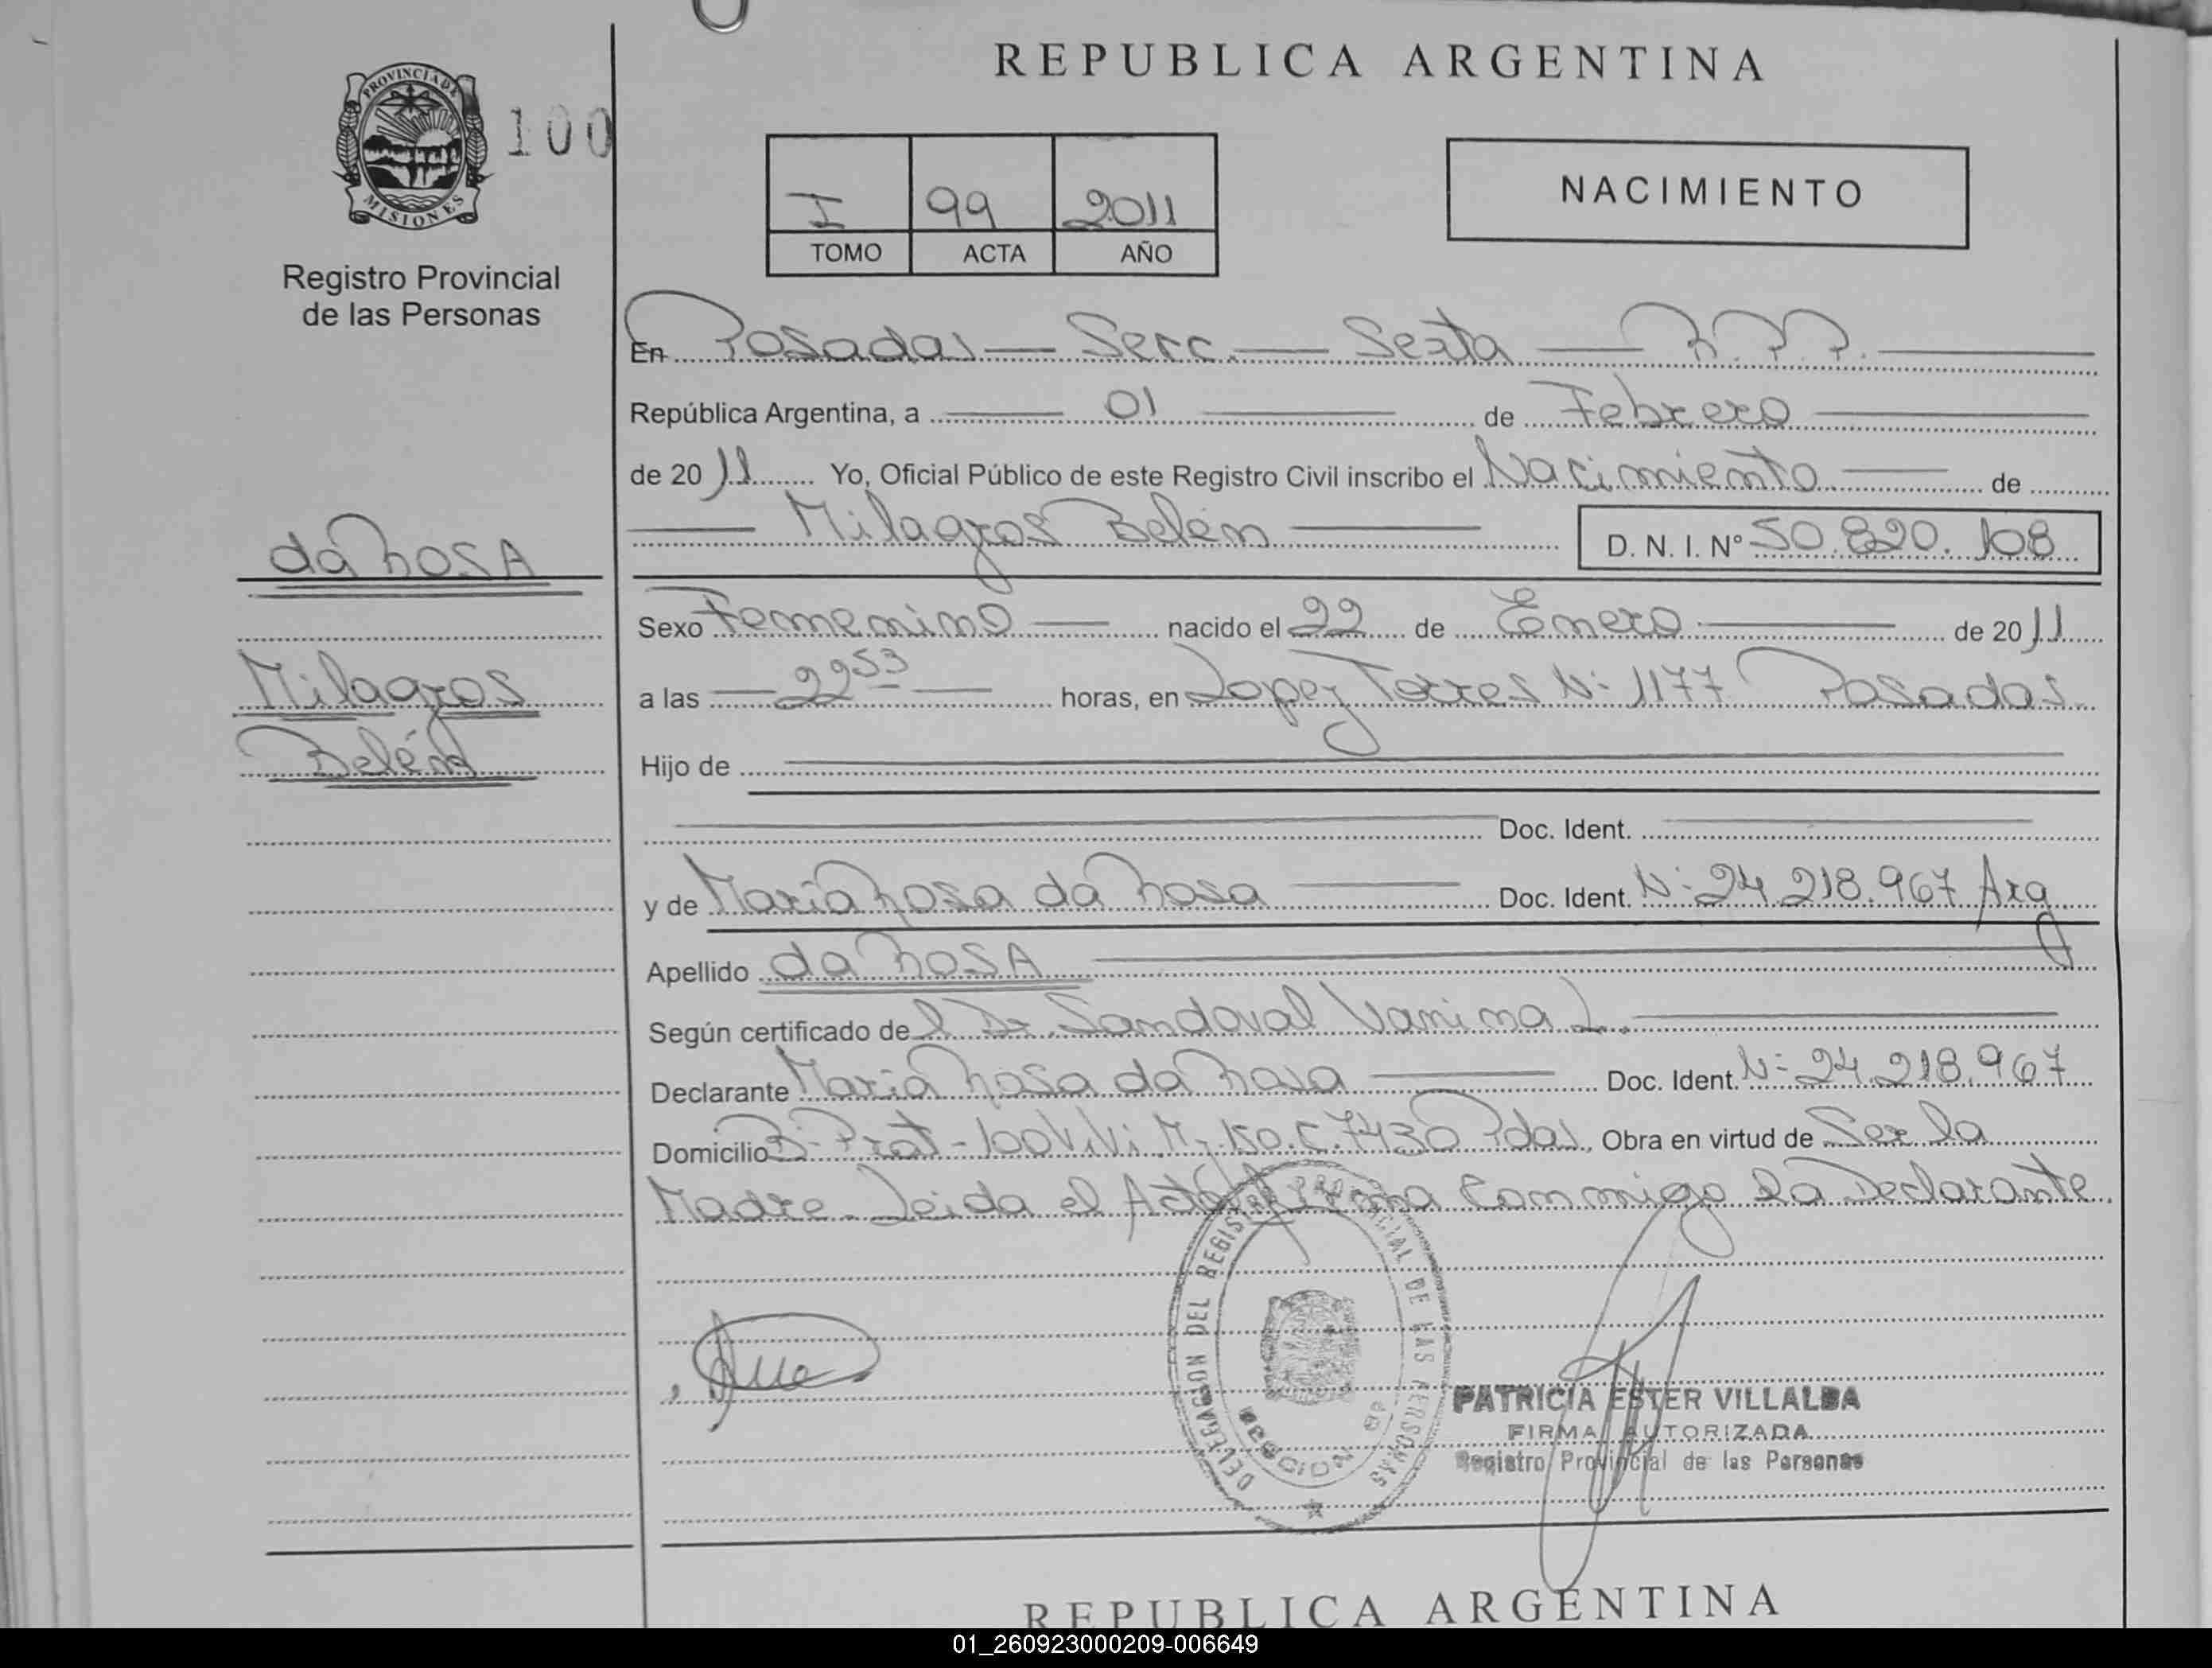 REPUBLICA ARGENTINA
PROVINCIA DE
MISIONES
100
Registro Provincial
de las Personas
I 99 2011
TOMO ACTA AÑO
NACIMIENTO
En Posadas — Secc. — Sexta — R.P.P.
República Argentina, a 01 de Febrero
de 2011 Yo, Oficial Público de este Registro Civil inscribo el Nacimiento de
Milagros Belén D. N. I. Nº 50.820.108
da Rosa
Milagros
Belén
Sexo Femenino nacido el 22 de Enero de 2011
a las 22 53 horas, en Lopez Torres Nº 1177 Posadas
Hijo de
Doc. Ident.
y de María Rosa da Rosa Doc. Ident. Nº 24.218.967 Arg
Apellido da Rosa
Según certificado del Dr. Sandoval Vanina L.
Declarante María Rosa da Rosa Doc. Ident. Nº 24.218.967
Domicilio Bº Prat - 100 Viv. M. 150.C.7430 Pdas. Obra en virtud de Ser la
Madre. Leida el Acta Firma Conmigo la Declarante.
DELEGACION DEL REGISTRO PROVINCIAL DE LAS PERSONAS
SECCION 6ª
PATRICIA ESTER VILLALBA
FIRMA AUTORIZADA
Registro Provincial de las Personas
REPUBLICA ARGENTINA
01_260923000209-006649